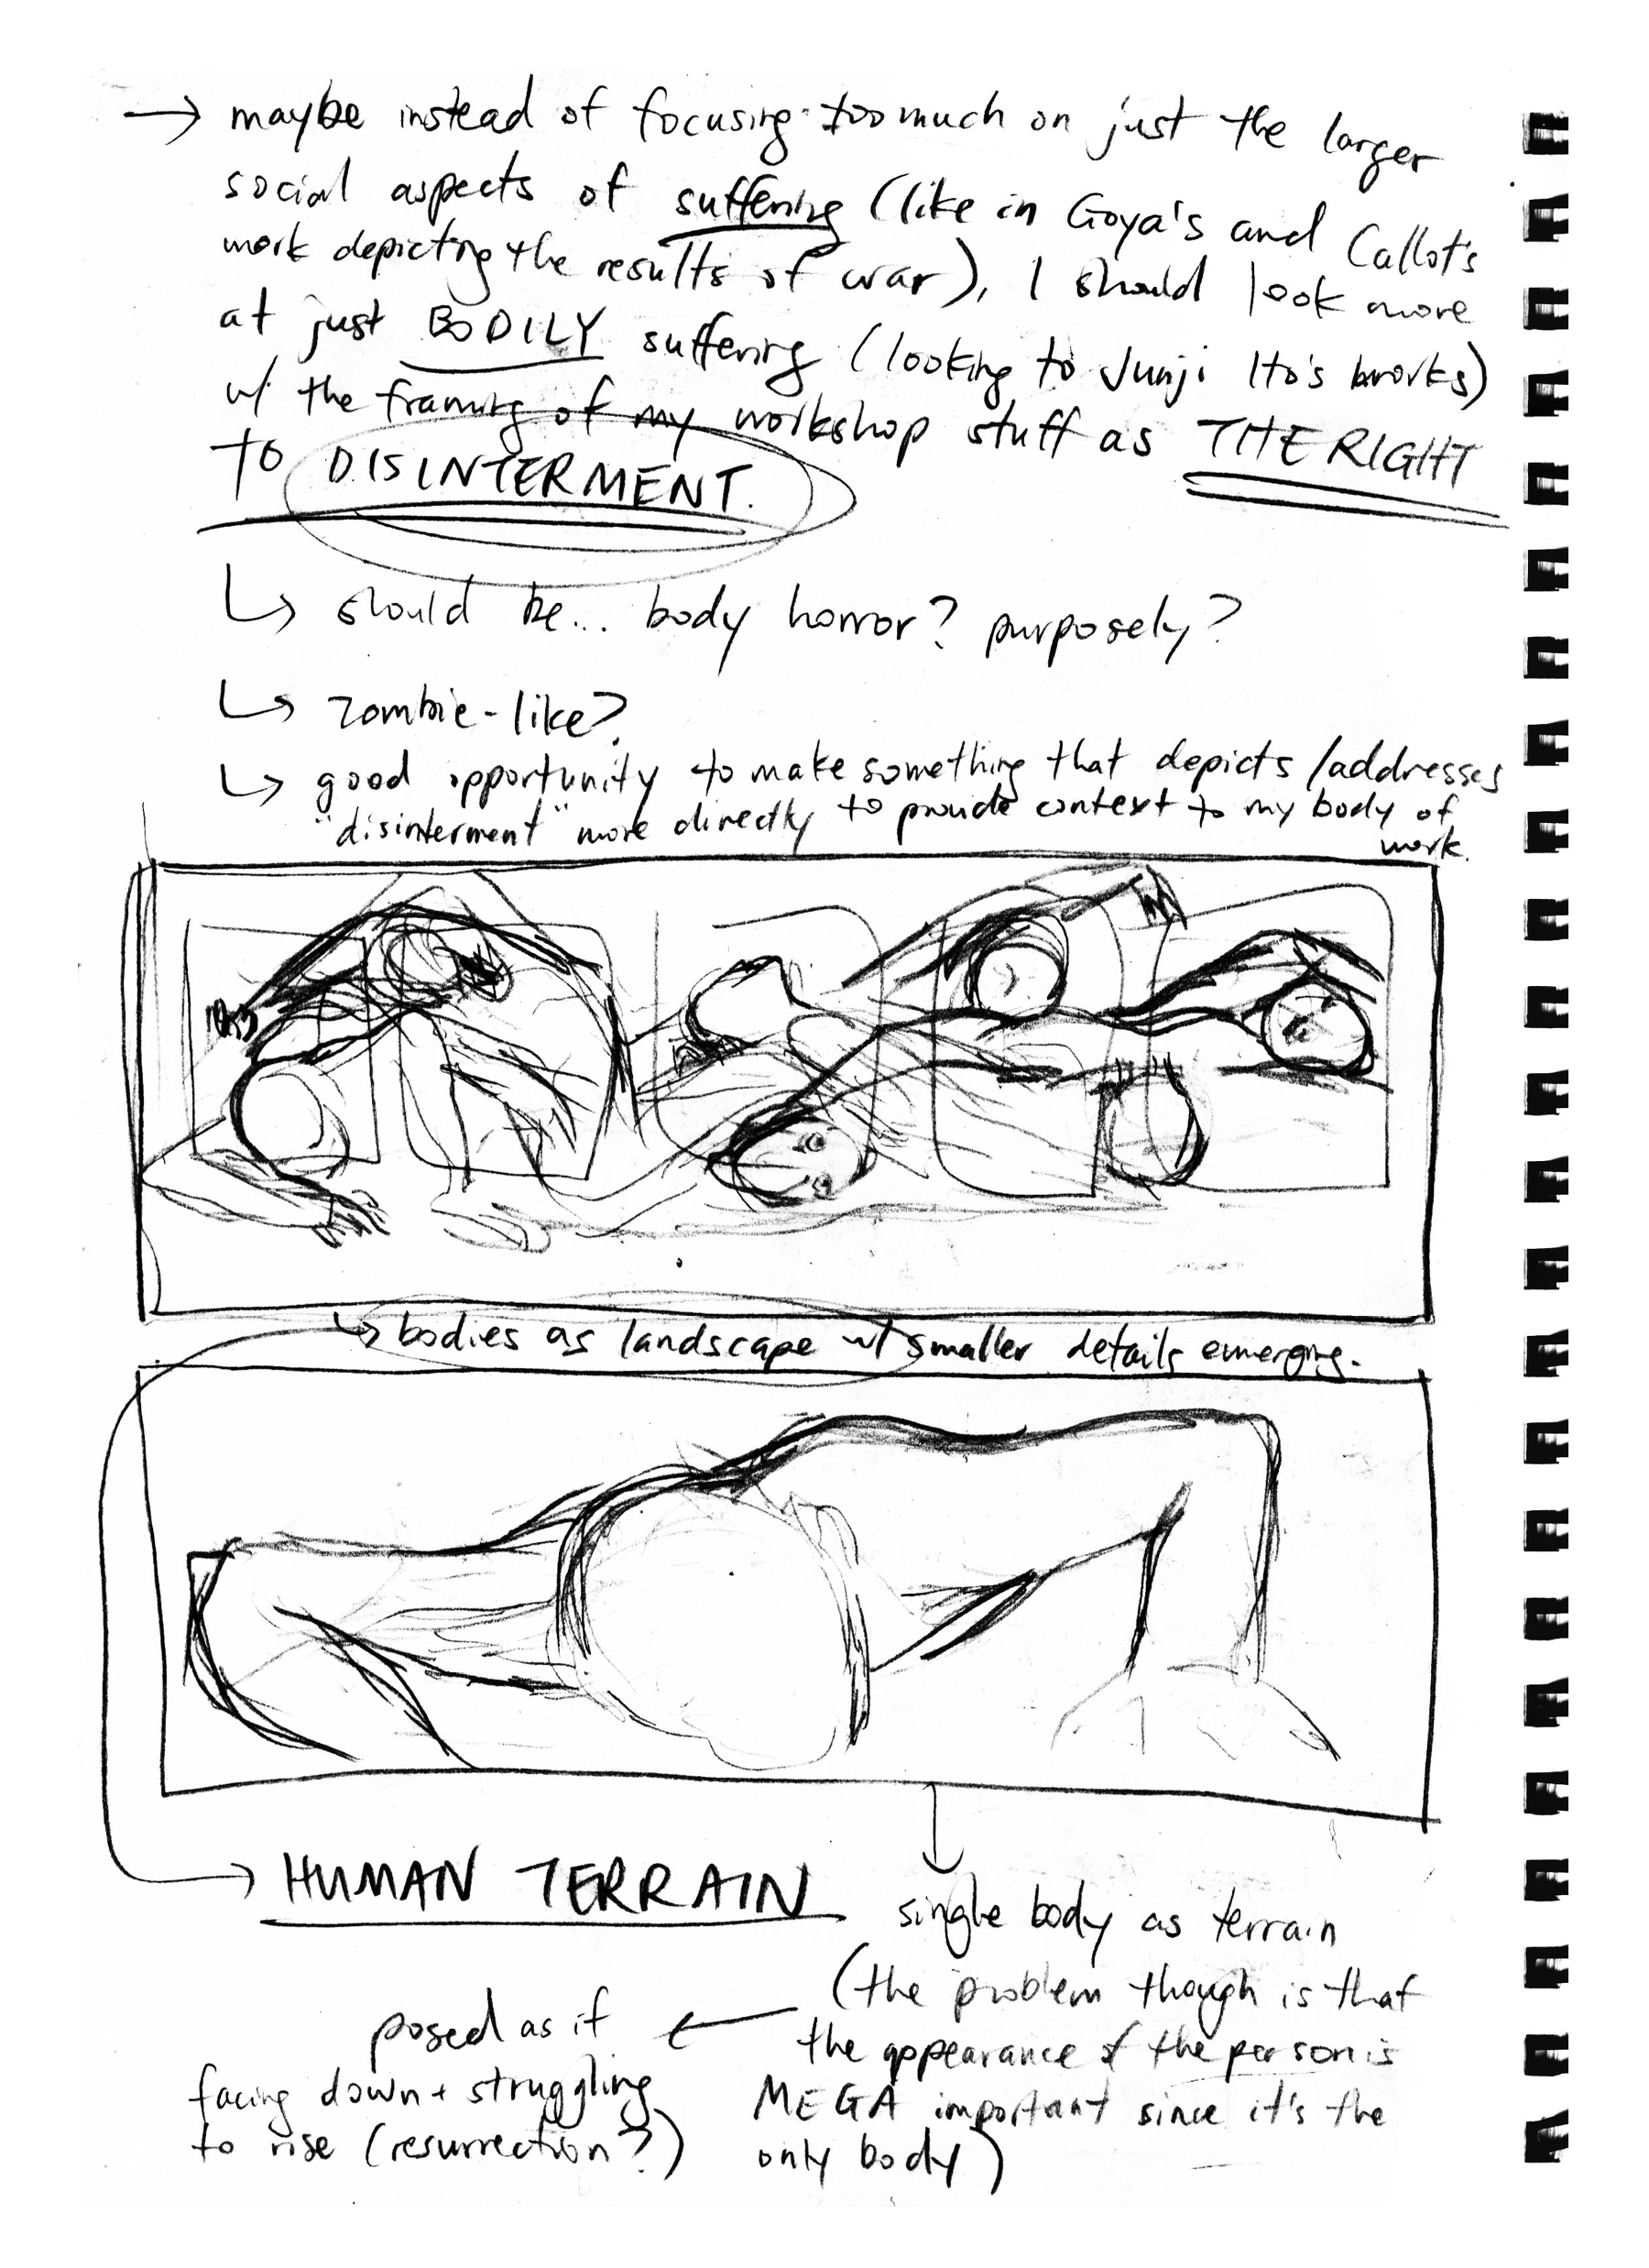 → maybe instead of focusing too much on just the larger
social aspects of suffering (like in Goya's and Callot's
work depicting the results of war), I should look more
at just BODILY suffering (looking to Junji Ito's works)
w/ the framing of my workshop stuff as THE RIGHT
TO DISINTERMENT.
↳ should be... body horror? purposely?
↳ zombie-like?
↳ good opportunity to make something that depicts/addresses
"disinterment" more directly to provide context to my body of
work.
↳ bodies as landscape w/ smaller details emerging.
→ HUMAN TERRAIN
single body as terrain
(the problem though is that
the appearance of the person is
MEGA important since it's the
only body)
posed as if
facing down + struggling
to rise (resurrection?)